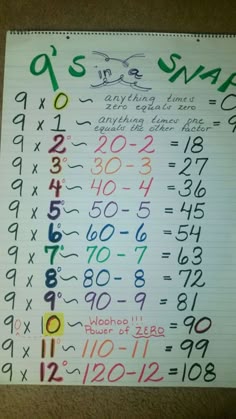 9's in a SNAP
9 x 0 ~ anything times zero equals zero = 0
9 x 1 ~ anything times one equals the other factor = 9
9 x 2 ~ 20-2 = 18
9 x 3 ~ 30-3 = 27
9 x 4 ~ 40-4 = 36
9 x 5 ~ 50-5 = 45
9 x 6 ~ 60-6 = 54
9 x 7 ~ 70-7 = 63
9 x 8 ~ 80-8 = 72
9 x 9 ~ 90-9 = 81
9 x 10 ~ Woohoo!!! Power of ZERO = 90
9 x 11 ~ 110-11 = 99
9 x 12 ~ 120-12 = 108